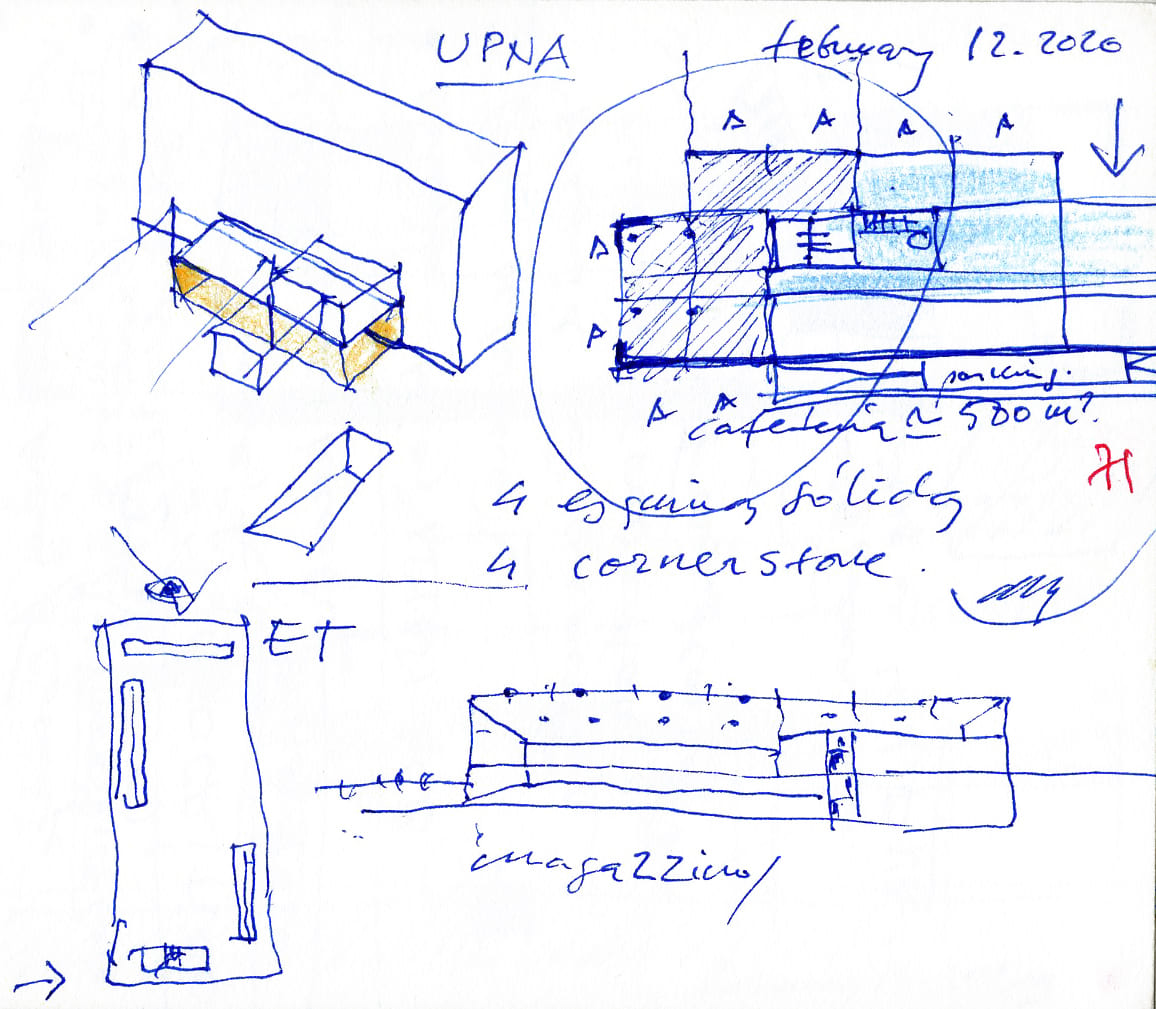 UPNA
february 12. 2020
A A A A
A
A
parking.
A A
cafetería ≃ 500 m².
4 esquinas sólidas
4 cornerstone.
ET
magazzino/